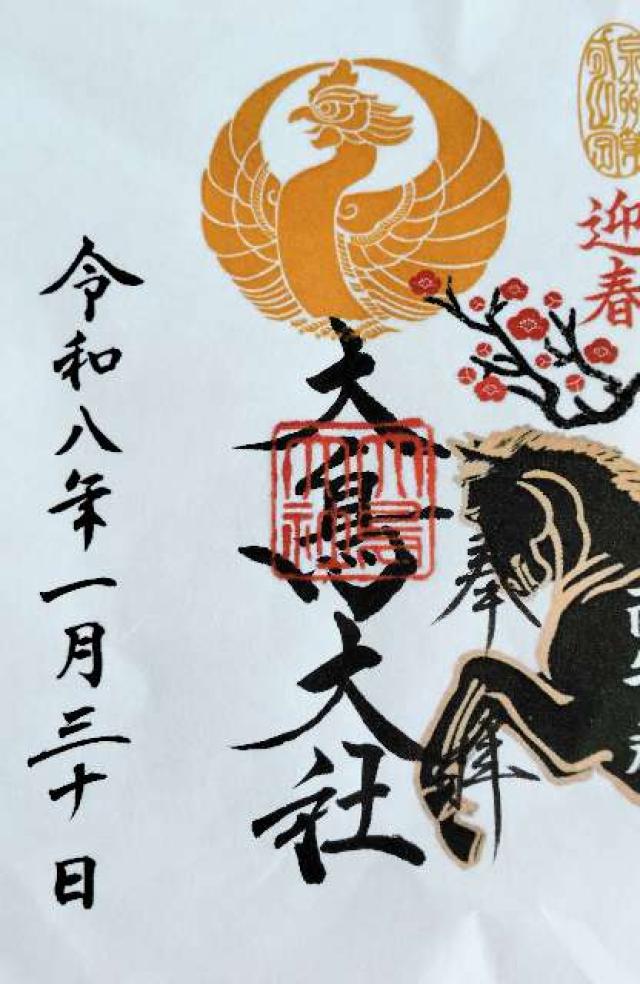 迎春
奉拝
大鳥大社
大鳥大社
令和八年一月三十日